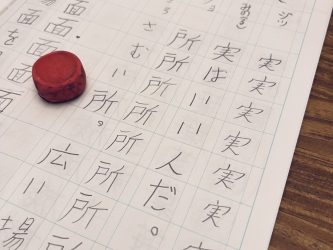 ジツ
みのる
実実実実実
実はいい人だ。
所所所所所所所所
さむい所。広い場
面面面
面を面